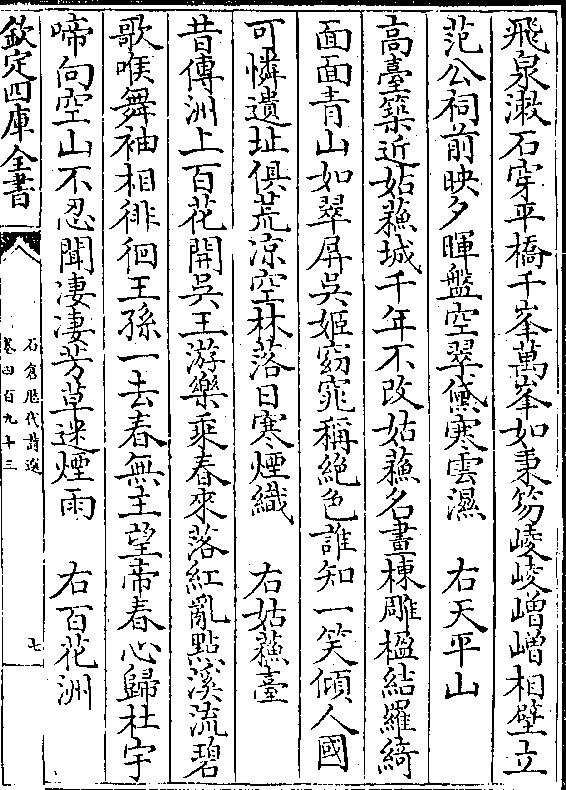 飛泉漱石穿平橋千峯萬峯如秉笏崚崚嶒嶒相壁立
范公祠前映夕暉盤空翠黛寒雲濕　右天平山
高臺築近姑蘓城千年不改姑蘓名畫棟雕楹結羅綺
面面青山如翠屏吳姬窈窕稱絶色誰知一笑傾人國
可憐遺址俱荒凉空林落日寒煙織　右姑蘓臺
昔傳洲上百花開吳王游樂乘春來落紅亂點溪流碧
歌喉舞袖相徘徊王孫一去春無主望帝春心歸杜宇
啼向空山不忍聞凄凄芳草迷煙雨　右百花洲
欽定四庫全書
石倉歷代詩選
卷四百九十三
七